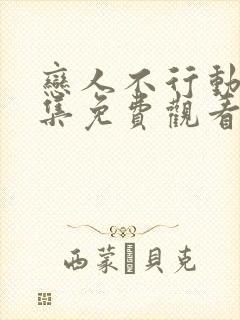 戀人不行動
集免費觀看
西蒙·貝克